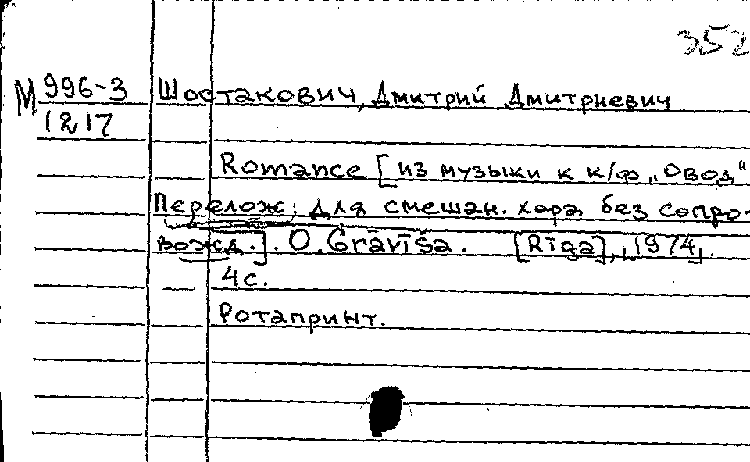 352
М 996-3 Шостакович, Дмитрий Дмитриевич
1217
Romance [из музыки к к/ф „Овод"
Перелож. для смешан. хора без сопро-
вожд.]. O. Grāvīša. [Rīga], 1974,
4 с.
Ротапринт.